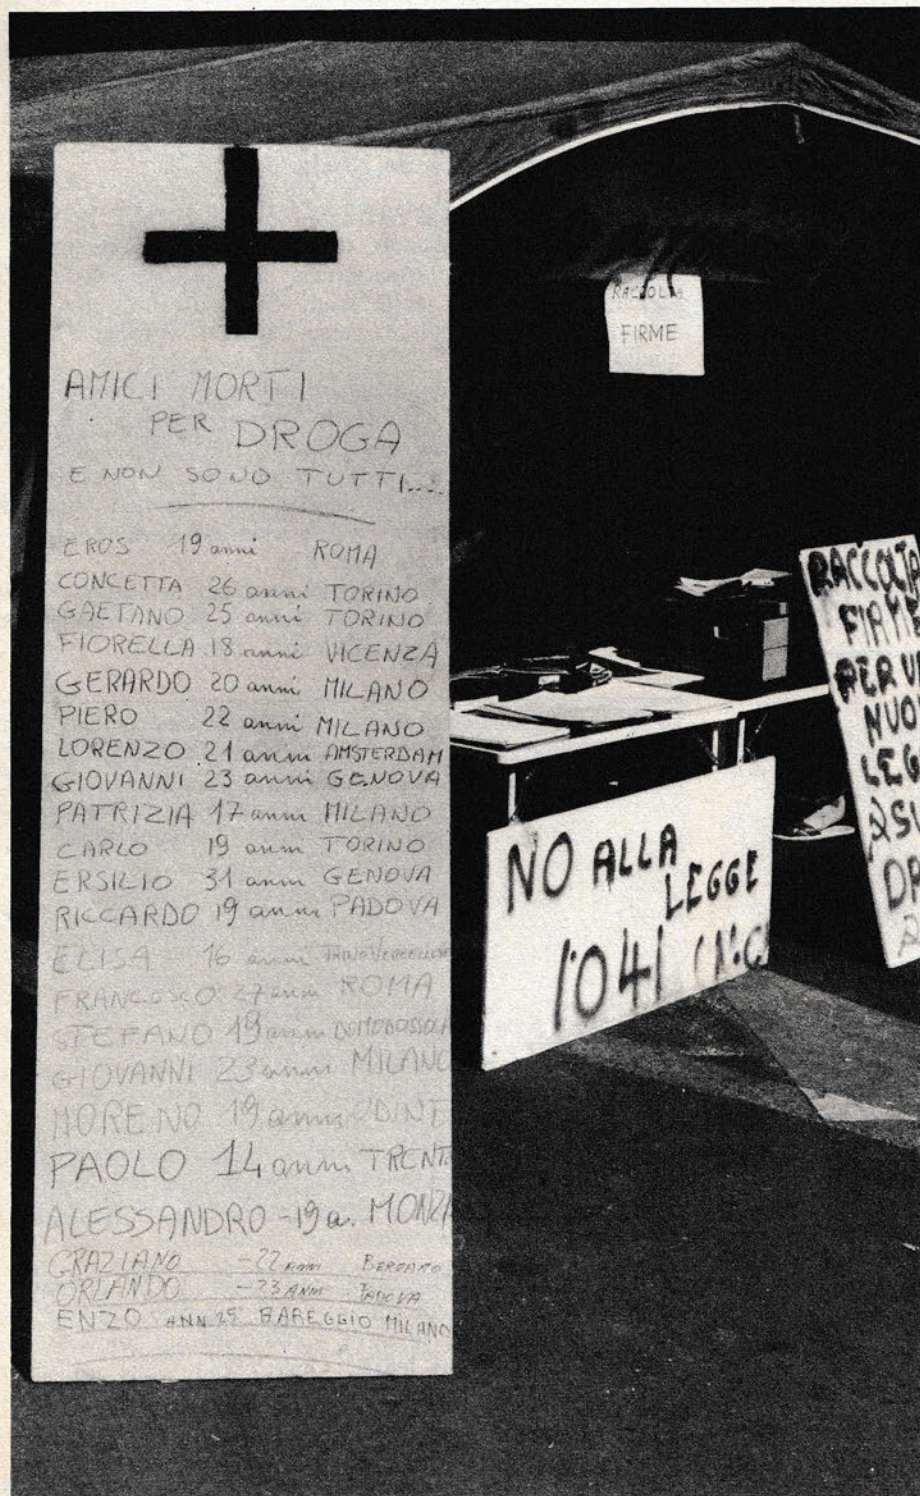 AMICI MORTI
PER DROGA
E NON SONO TUTTI....
EROS 19 anni ROMA
CONCETTA 26 anni TORINO
GAETANO 25 anni TORINO
FIORELLA 18 anni VICENZA
GERARDO 20 anni MILANO
PIERO 22 anni MILANO
LORENZO 21 anni AMSTERDAM
GIOVANNI 23 anni GENOVA
PATRIZIA 17 anni MILANO
CARLO 19 anni TORINO
ERSILIO 31 anni GENOVA
RICCARDO 19 anni PADOVA
ELISA 16 anni
FRANCESCO 27 anni ROMA
STEFANO 19 anni DOMODOSSOLA
GIOVANNI 23 anni MILANO
MORENO 19 anni UDINE
PAOLO 14 anni TRENT
ALESSANDRO - 19 a. MONZA
GRAZIANO - 22 anni BERGAMO
ORLANDO - 23 ANNI PADOVA
ENZO ANN 25 BAREGGIO MILANO
RACCOLTA
FIRME
NO ALLA
LEGGE
1041
RACCOLTA
FIRME
PER U
NUO
LEG
SU
DR